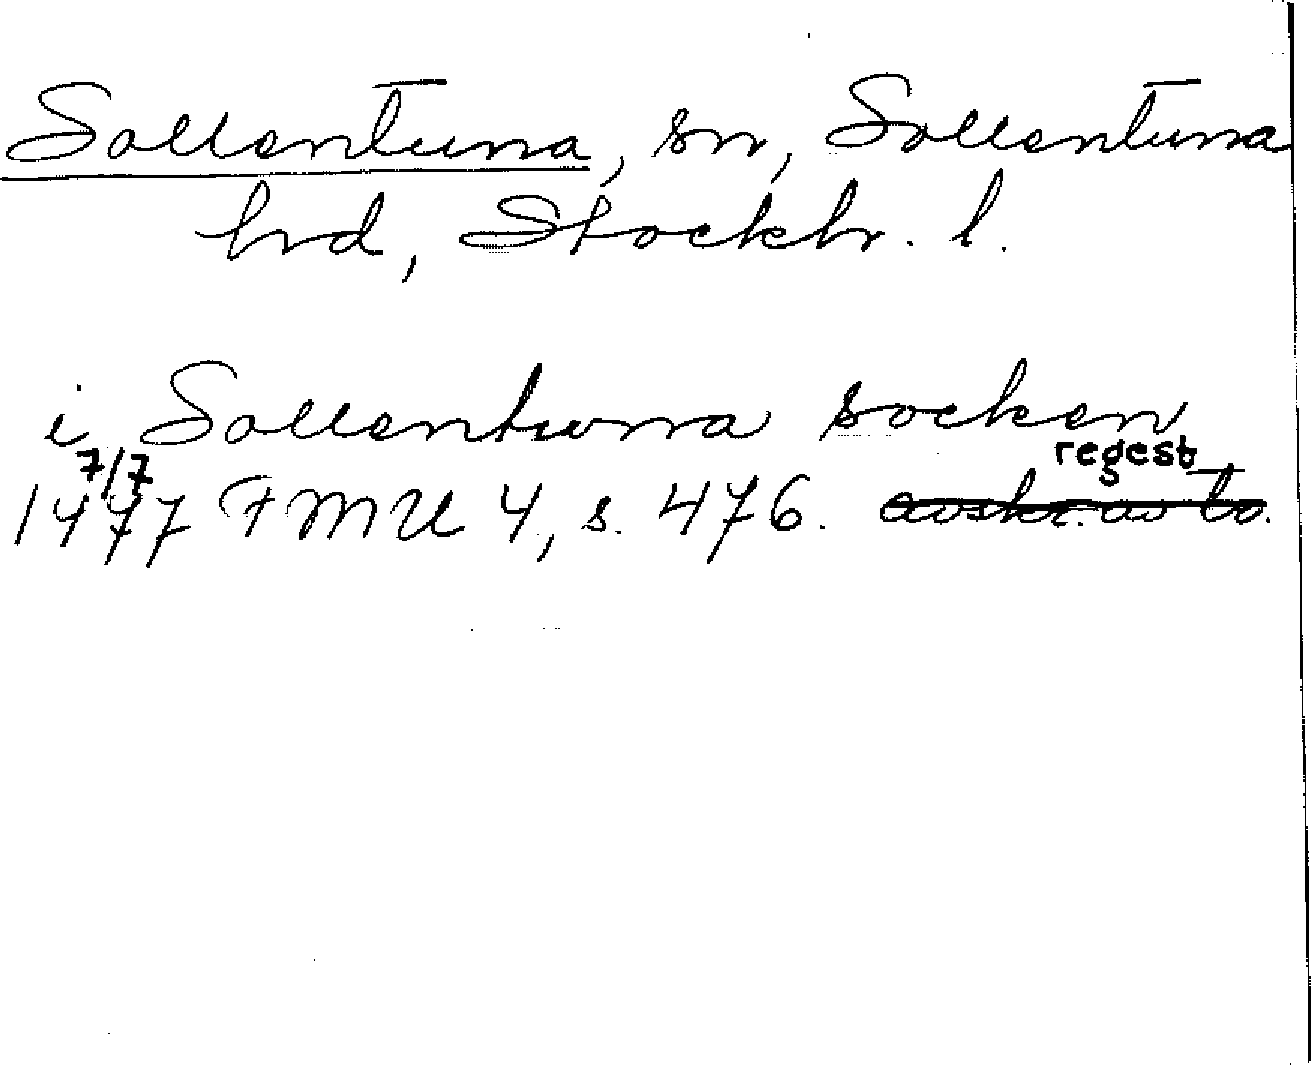 Sollentuna, sn, Sollentuna
hrd, Stockh. l.
i Sollentuna socken
7/7 regest
1477 FMU 4, s. 476. avskr. av